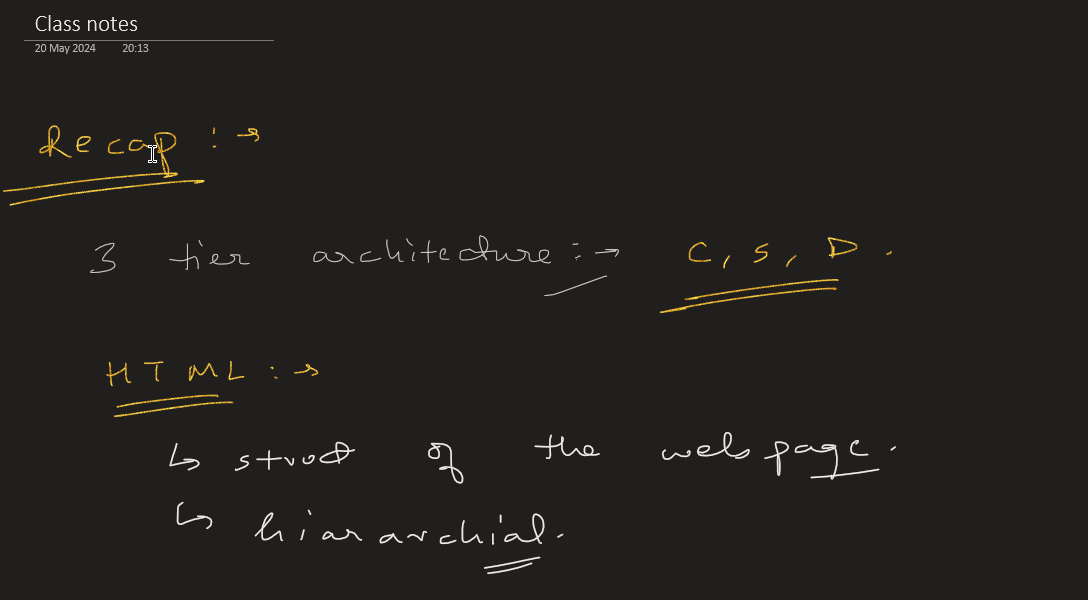 Class notes
20 May 2024 20:13
Recap :→
3 tier architecture :→ C, S, D.
HTML :→
↳ struct of the webpage.
↳ hiararchial.